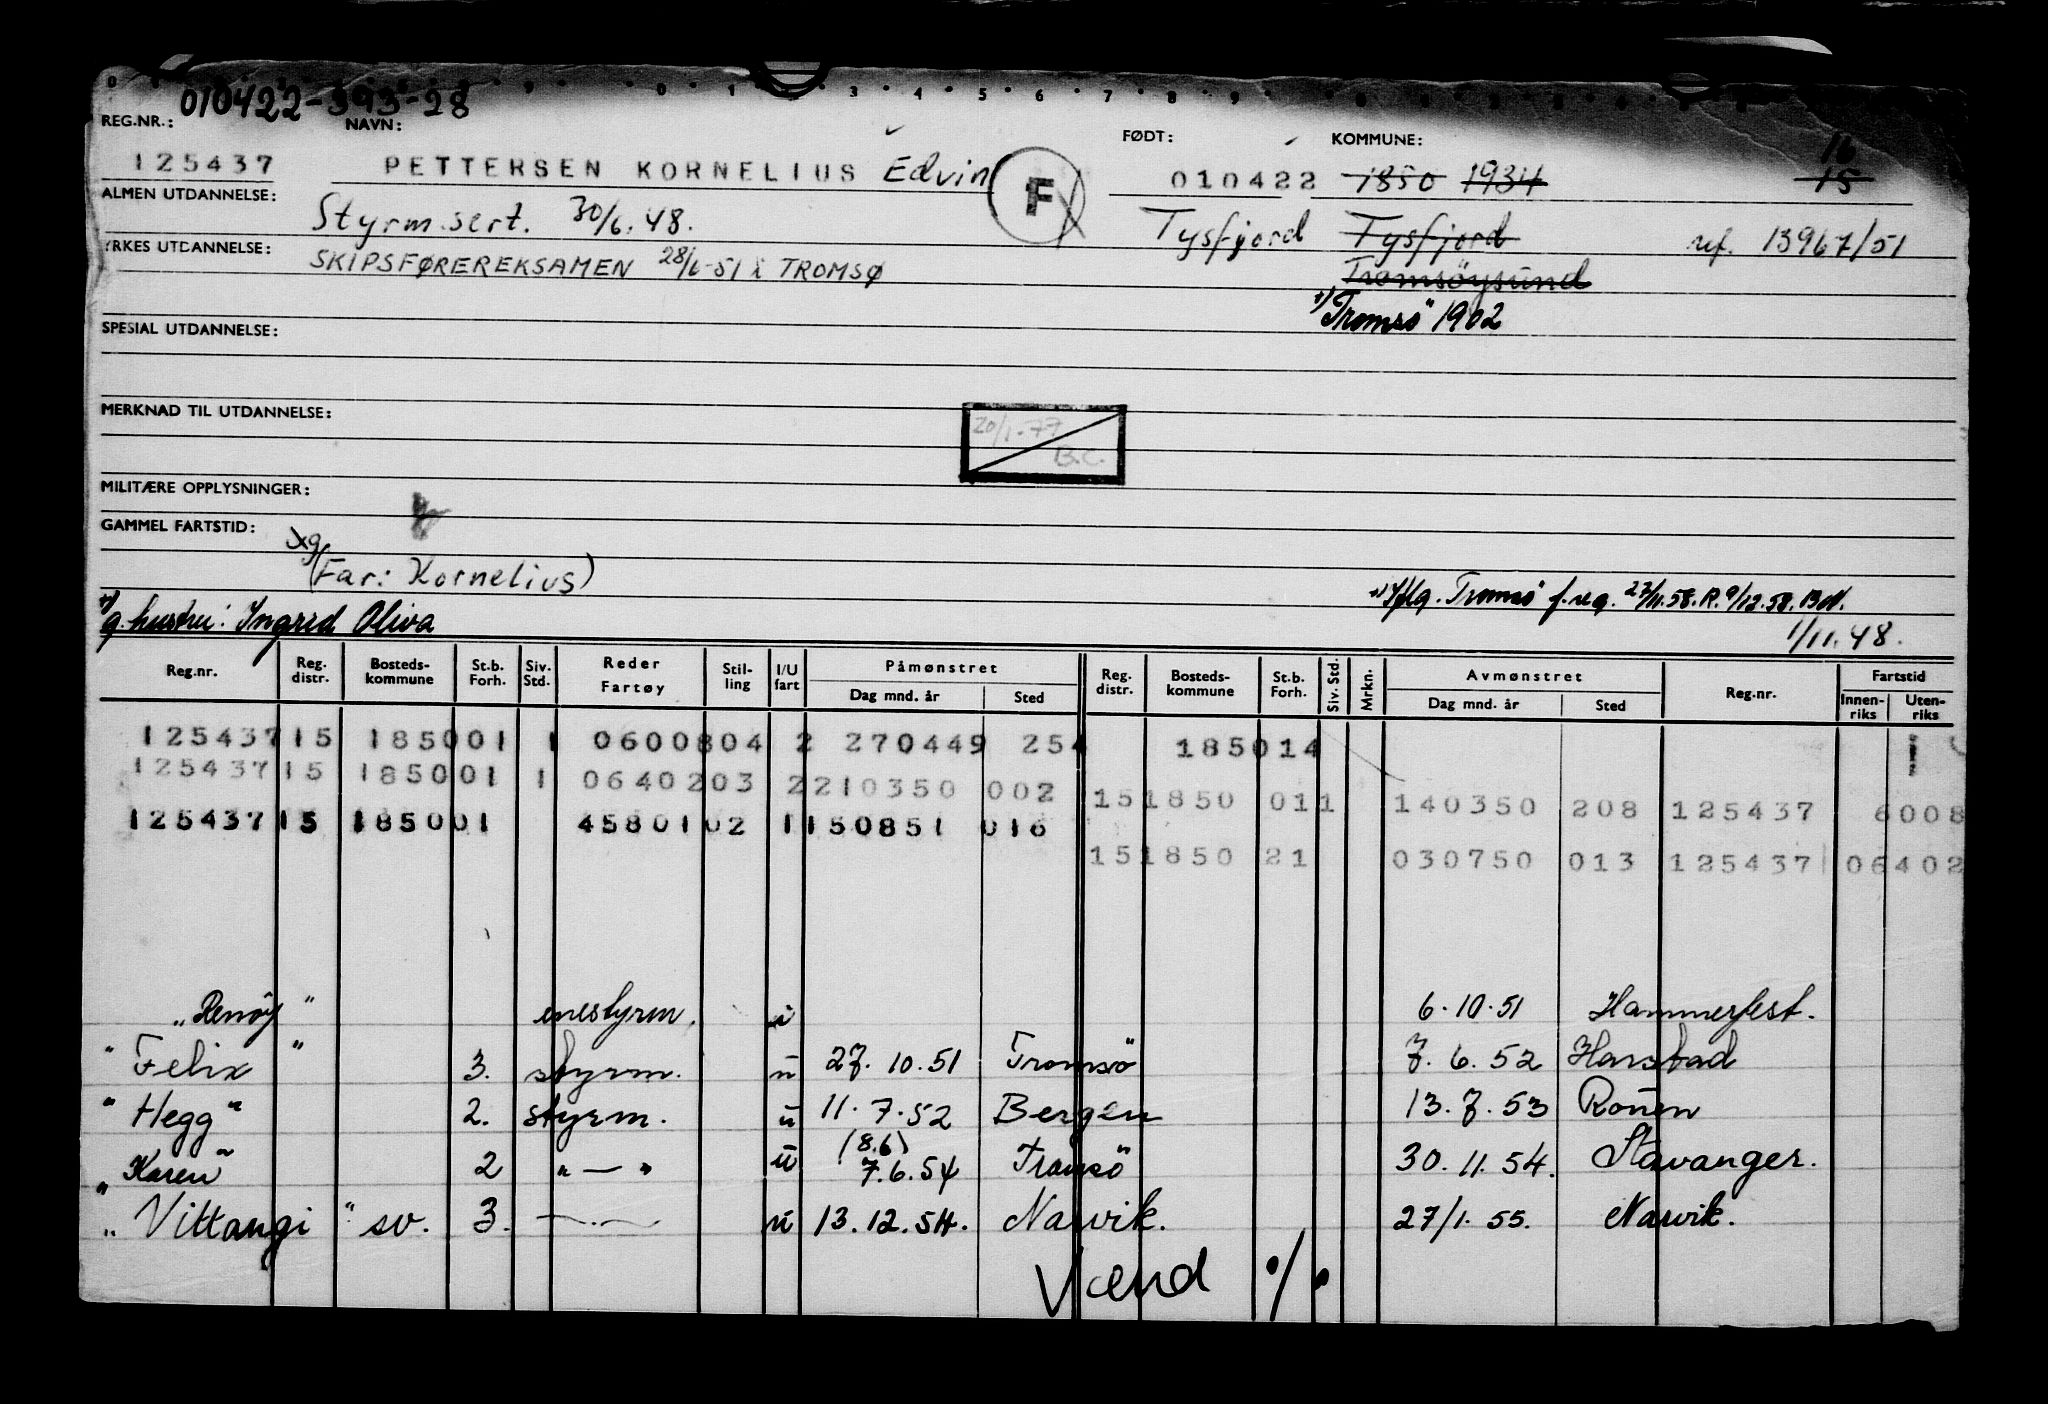 010422-393-28
REG.NR.: NAVN: FØDT: KOMMUNE: 16
125437 PETTERSEN KORNELIUS Edvin F 010422 1850 1934 15
ALMEN UTDANNELSE: Styrm.sert. 30/6.48. Tysfjord Tysfjord ref. 13967/51
YRKES UTDANNELSE: SKIPSFØREREKSAMEN 28/6-51 i TROMSØ Tromsöysund
+) Tromsö 1902
SPESIAL UTDANNELSE:
MERKNAD TIL UTDANNELSE:
20/1-77
B.C.
MILITÆRE OPPLYSNINGER:
GAMMEL FARTSTID:
(Far: Kornelius)
g. hustru: Ingrid Oliva
Tromsö f.reg. 27/11.58. R. 9/12.58.
1/11.48.
Reg.nr. Reg. distr. Bosteds- kommune St.b. Forh. Siv. Std. Reder Fartøy Stil- ling I/U fart Påmønstret Dag mnd. år Sted Reg. distr. Bosteds- kommune St.b. Forh. Siv. Std. Mrkn. Avmønstret Dag mnd. år Sted Reg.nr. Fartstid Innen- riks Uten- riks
125437 15 1850 01 1 0600804 2 270449 254 1850 14
125437 15 1850 01 1 0640203 2 210350 002 15 1850 01 1 140350 208 125437 6008
125437 15 1850 01 4580102 1 150851 016
15 1850 21 030750 013 125437 06402
"Renöy" enestyrm. i 6.10.51 Hammerfest.
"Felix" 3. styrm. u 27.10.51 Tromsö 7.6.52 Harstad
"Hegg" 2. styrm. u 11.7.52 Bergen 13.7.53 Rouen
"Karen" 2 "—" u (8.6) 7.6.54 Tromsö 30.11.54. Stavanger.
"Vittangi" sv. 3. —"— u 13.12.54. Narvik. 27/1.55. Narvik.
Vend %